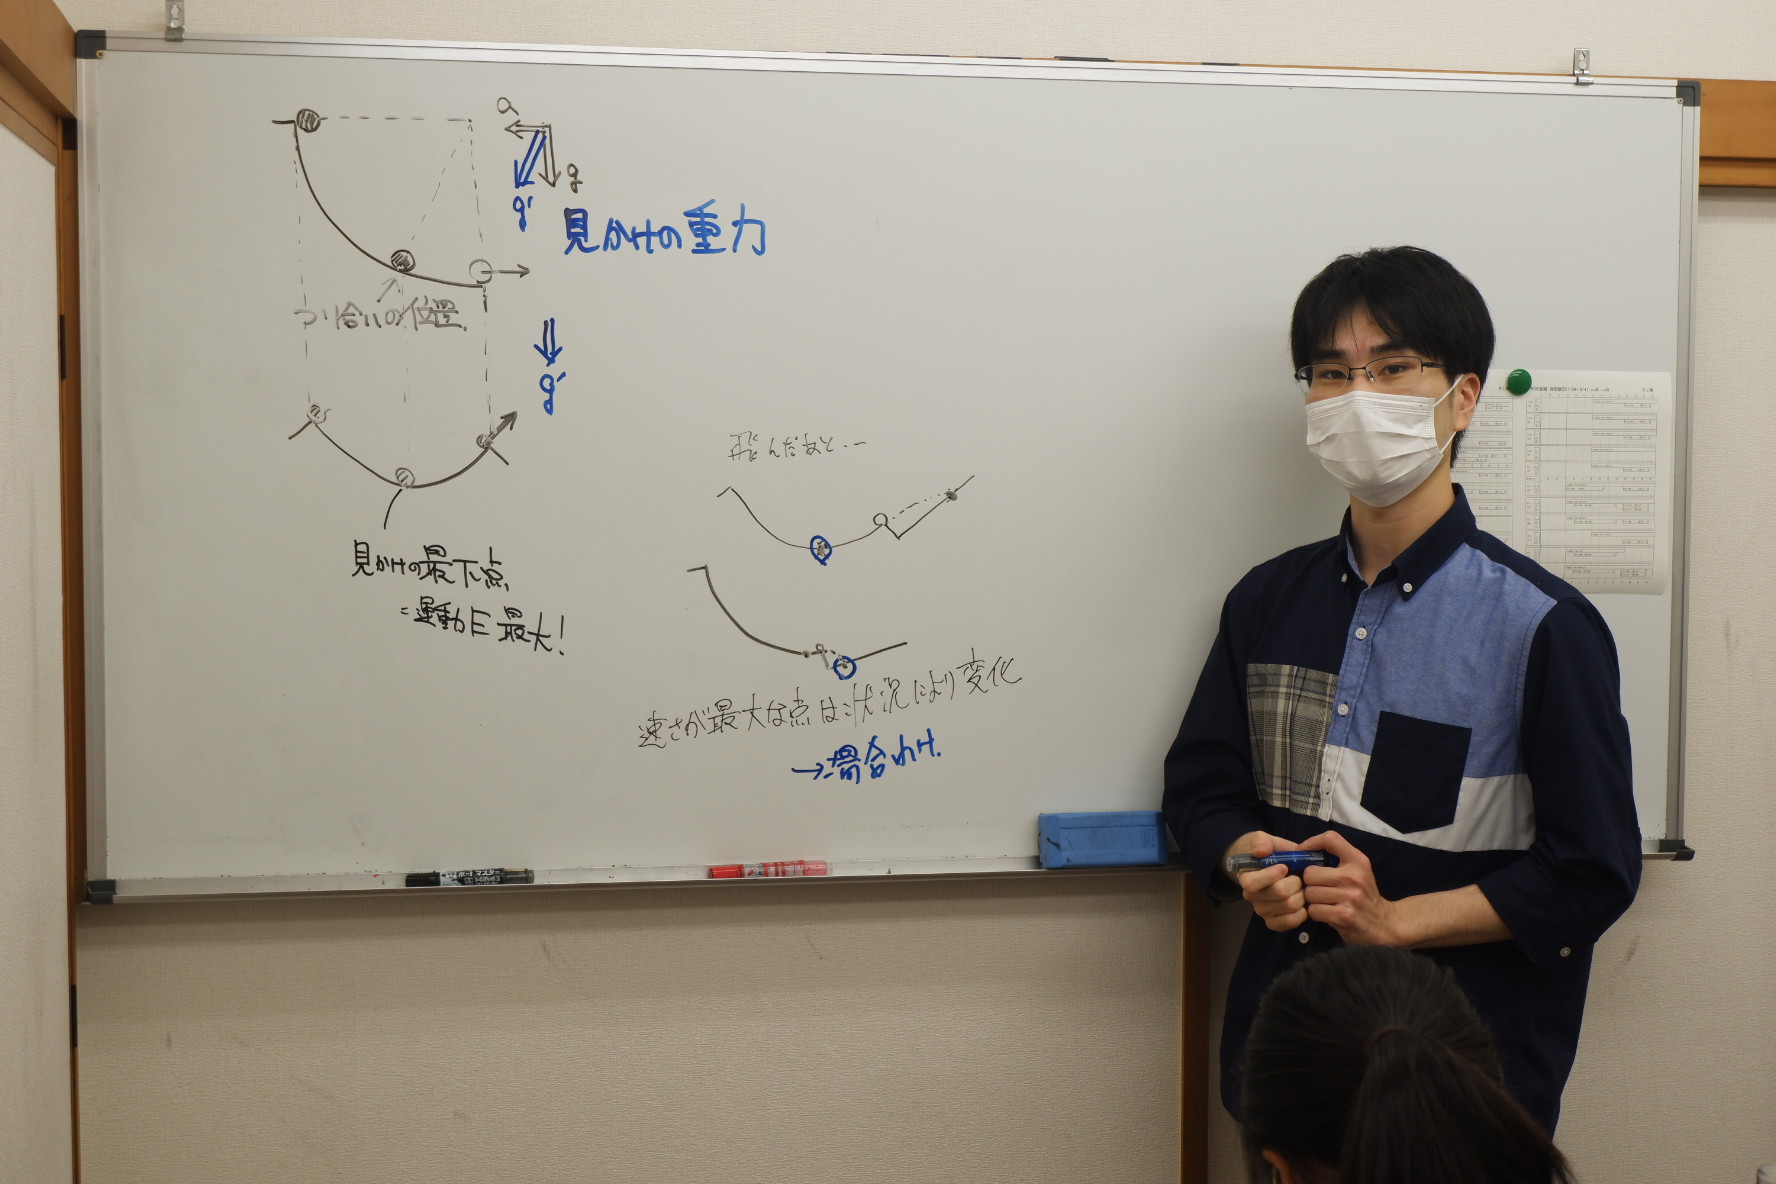 a
g
g'
見かけの重力
つり合いの位置
g'
見かけの最下点
=運動E最大!
飛んだあと…
速さが最大な点は状況により変化
→場合わけ.
ボードマスター